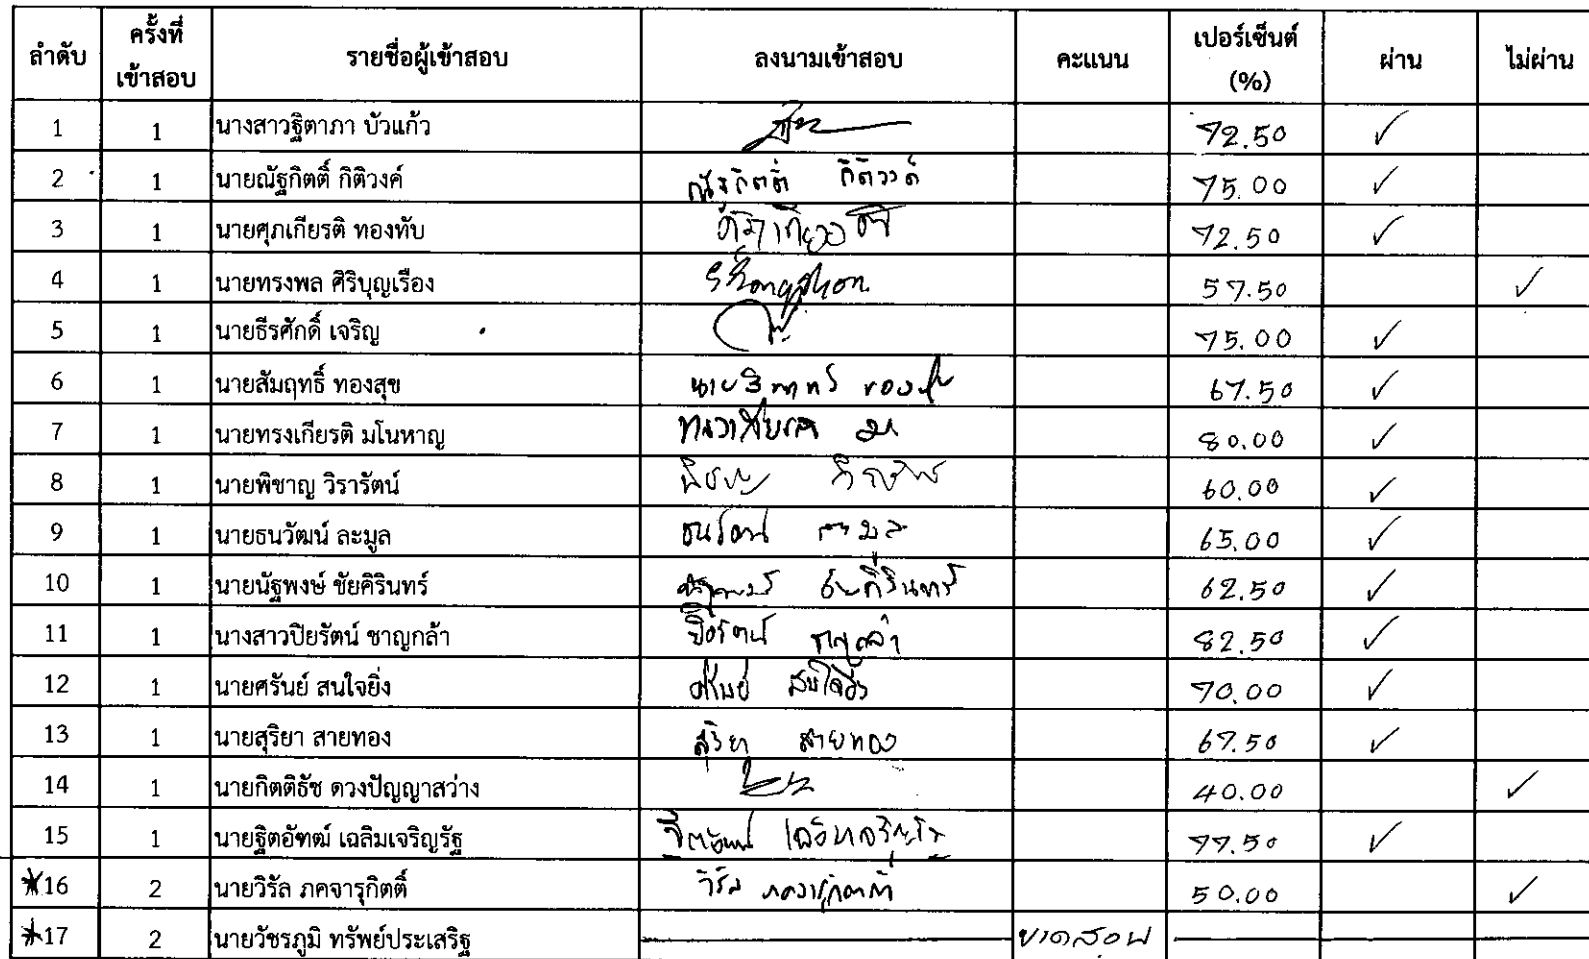 ลำดับ ครั้งที่เข้าสอบ รายชื่อผู้เข้าสอบ ลงนามเข้าสอบ คะแนน เปอร์เซ็นต์ (%) ผ่าน ไม่ผ่าน
1 1 นางสาวฐิตาภา บัวแก้ว 72.50 ✓
2 1 นายณัฐกิตติ์ กิติวงค์ ณัฐกิตติ์ กิติวงค์ 75.00 ✓
3 1 นายศุภเกียรติ ทองทับ 72.50 ✓
4 1 นายทรงพล ศิริบุญเรือง 57.50 ✓
5 1 นายธีรศักดิ์ เจริญ 75.00 ✓
6 1 นายสัมฤทธิ์ ทองสุข 67.50 ✓
7 1 นายทรงเกียรติ มโนหาญ 80.00 ✓
8 1 นายพิชาญ วิรารัตน์ 60.00 ✓
9 1 นายธนวัฒน์ ละมูล 65.00 ✓
10 1 นายนัฐพงษ์ ชัยคิรินทร์ 62.50 ✓
11 1 นางสาวปิยรัตน์ ชาญกล้า ปิยรัตน์ ชาญกล้า 82.50 ✓
12 1 นายศรันย์ สนใจยิ่ง ศรันย์ สนใจยิ่ง 70.00 ✓
13 1 นายสุริยา สายทอง สุริยา สายทอง 67.50 ✓
14 1 นายกิตติธัช ดวงปัญญาสว่าง 40.00 ✓
15 1 นายฐิตอัฑฒ์ เฉลิมเจริญรัฐ 77.50 ✓
*16 2 นายวิรัล ภคจารุกิตติ์ วิรัล ภคจารุกิตติ์ 50.00 ✓
*17 2 นายวัชรภูมิ ทรัพย์ประเสริฐ ขาดสอบ